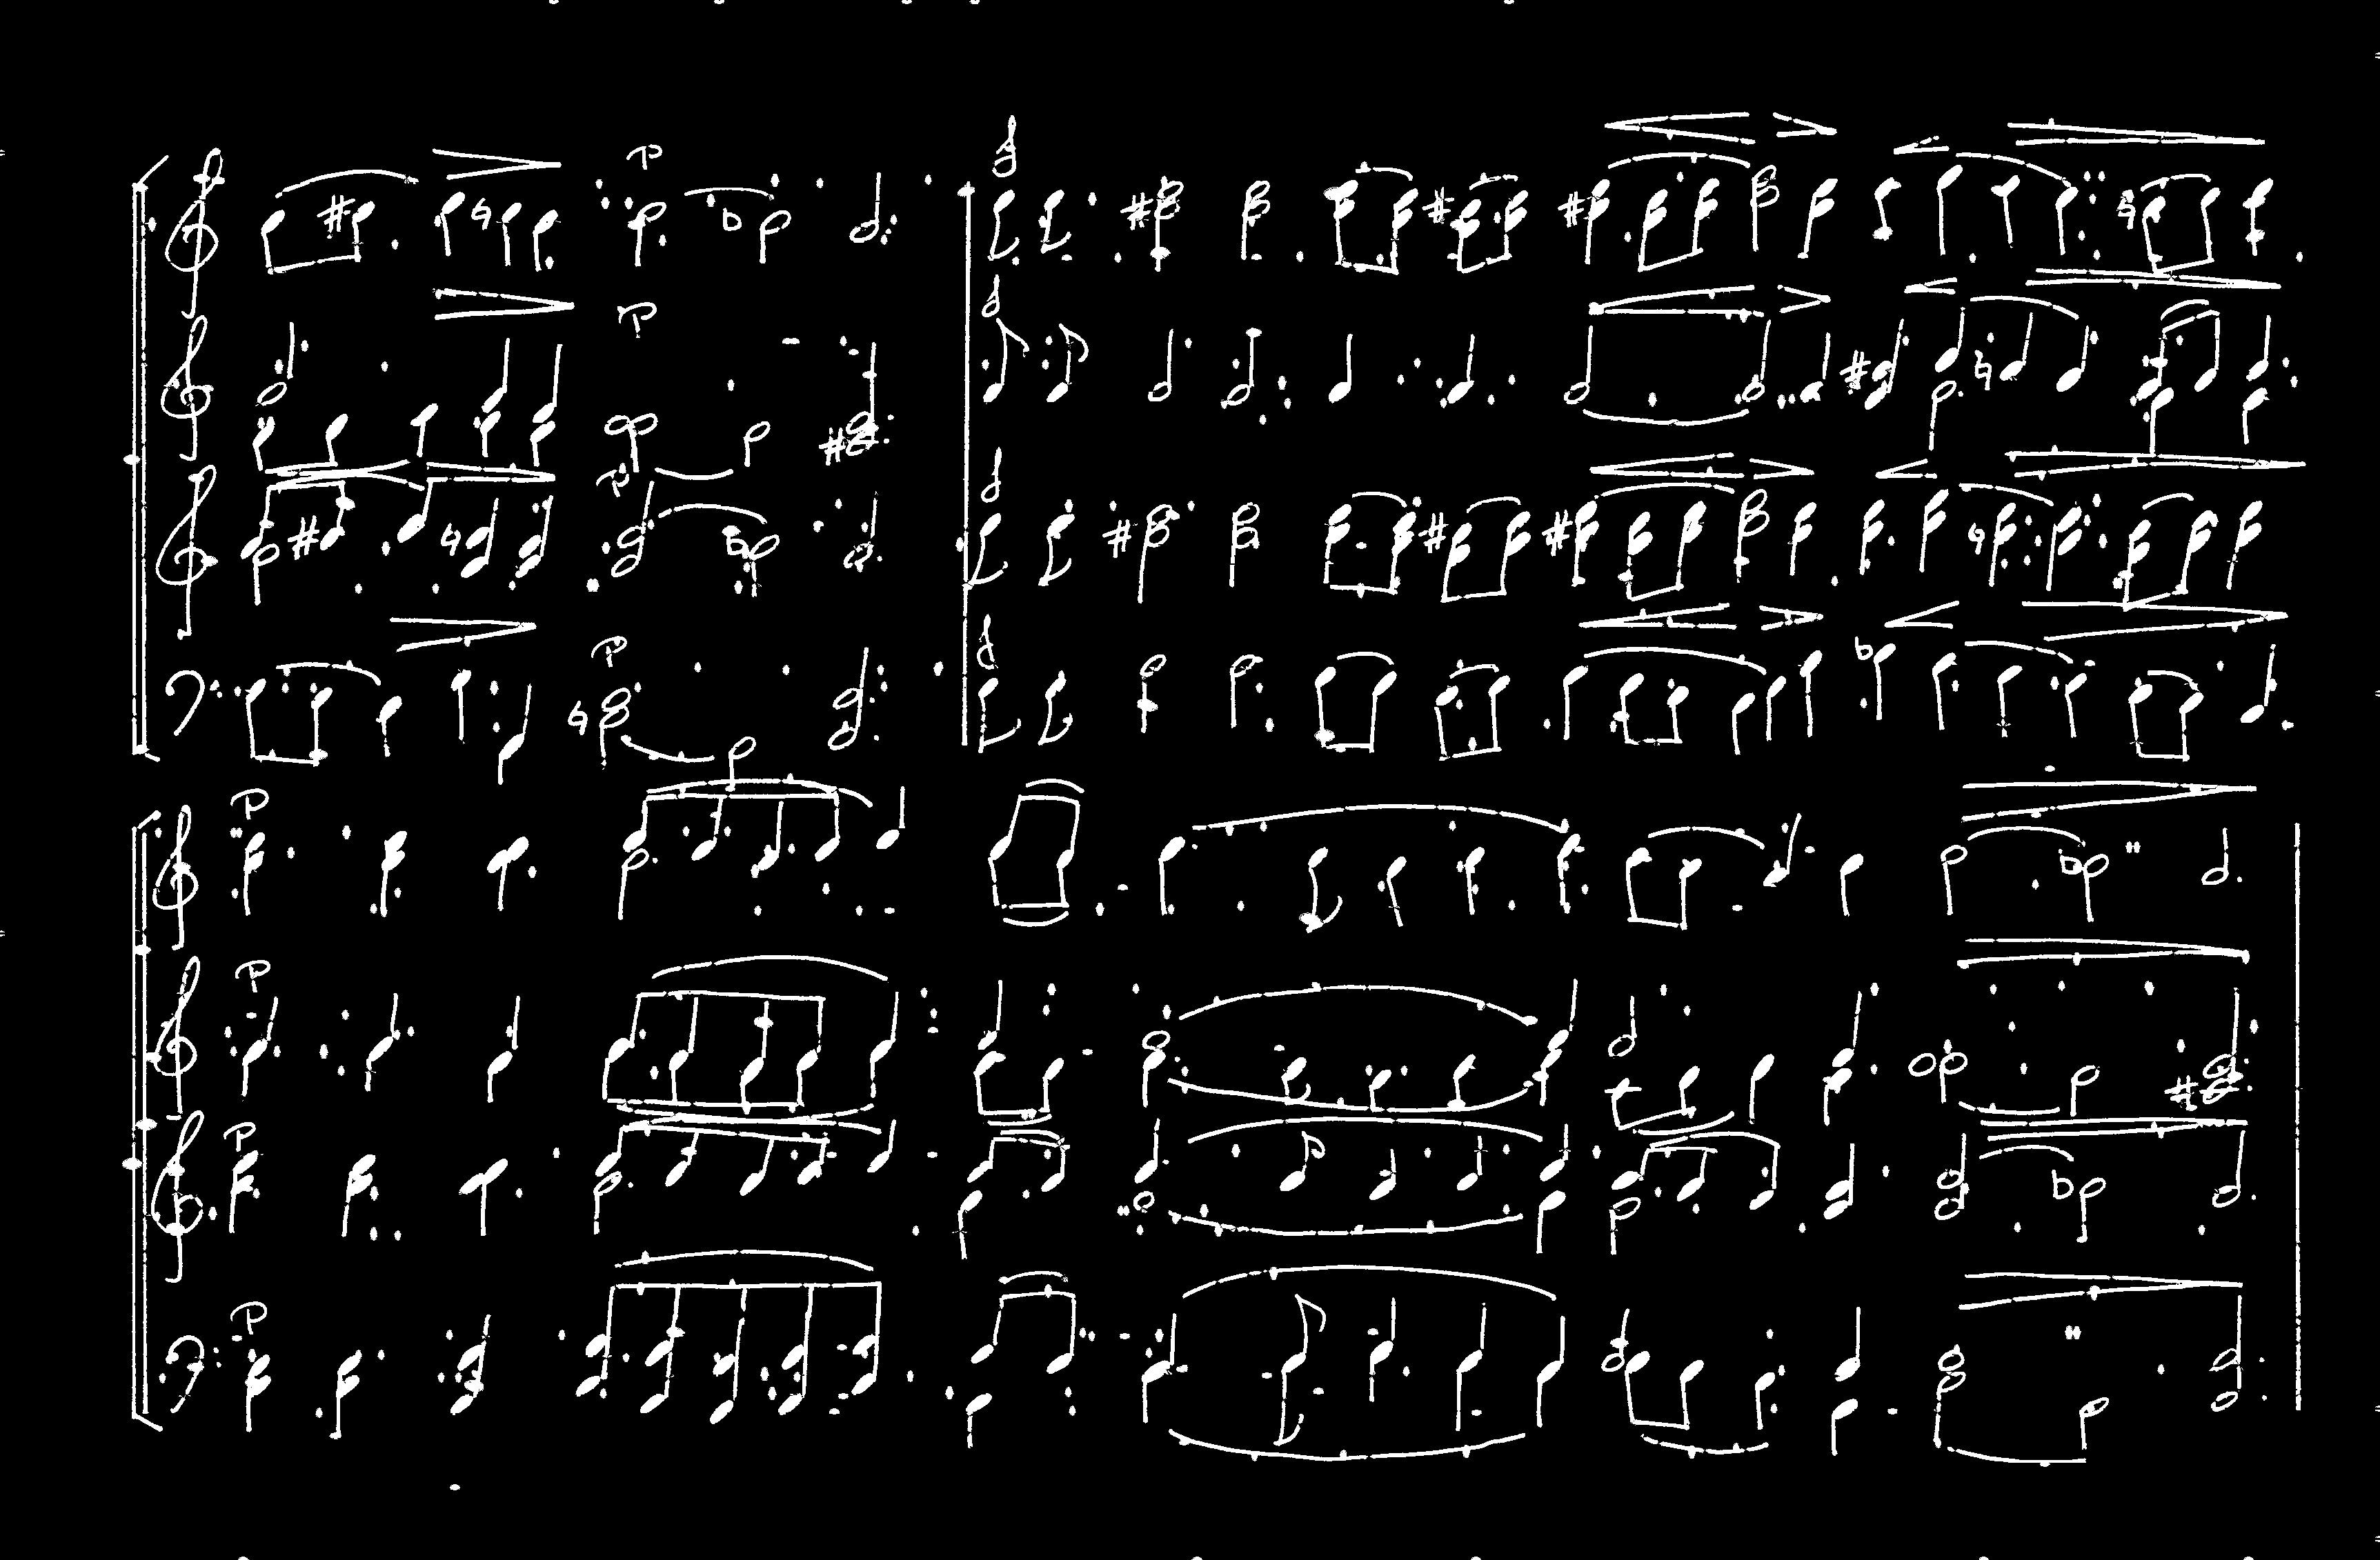 P
P
P
P
P
P
P
P